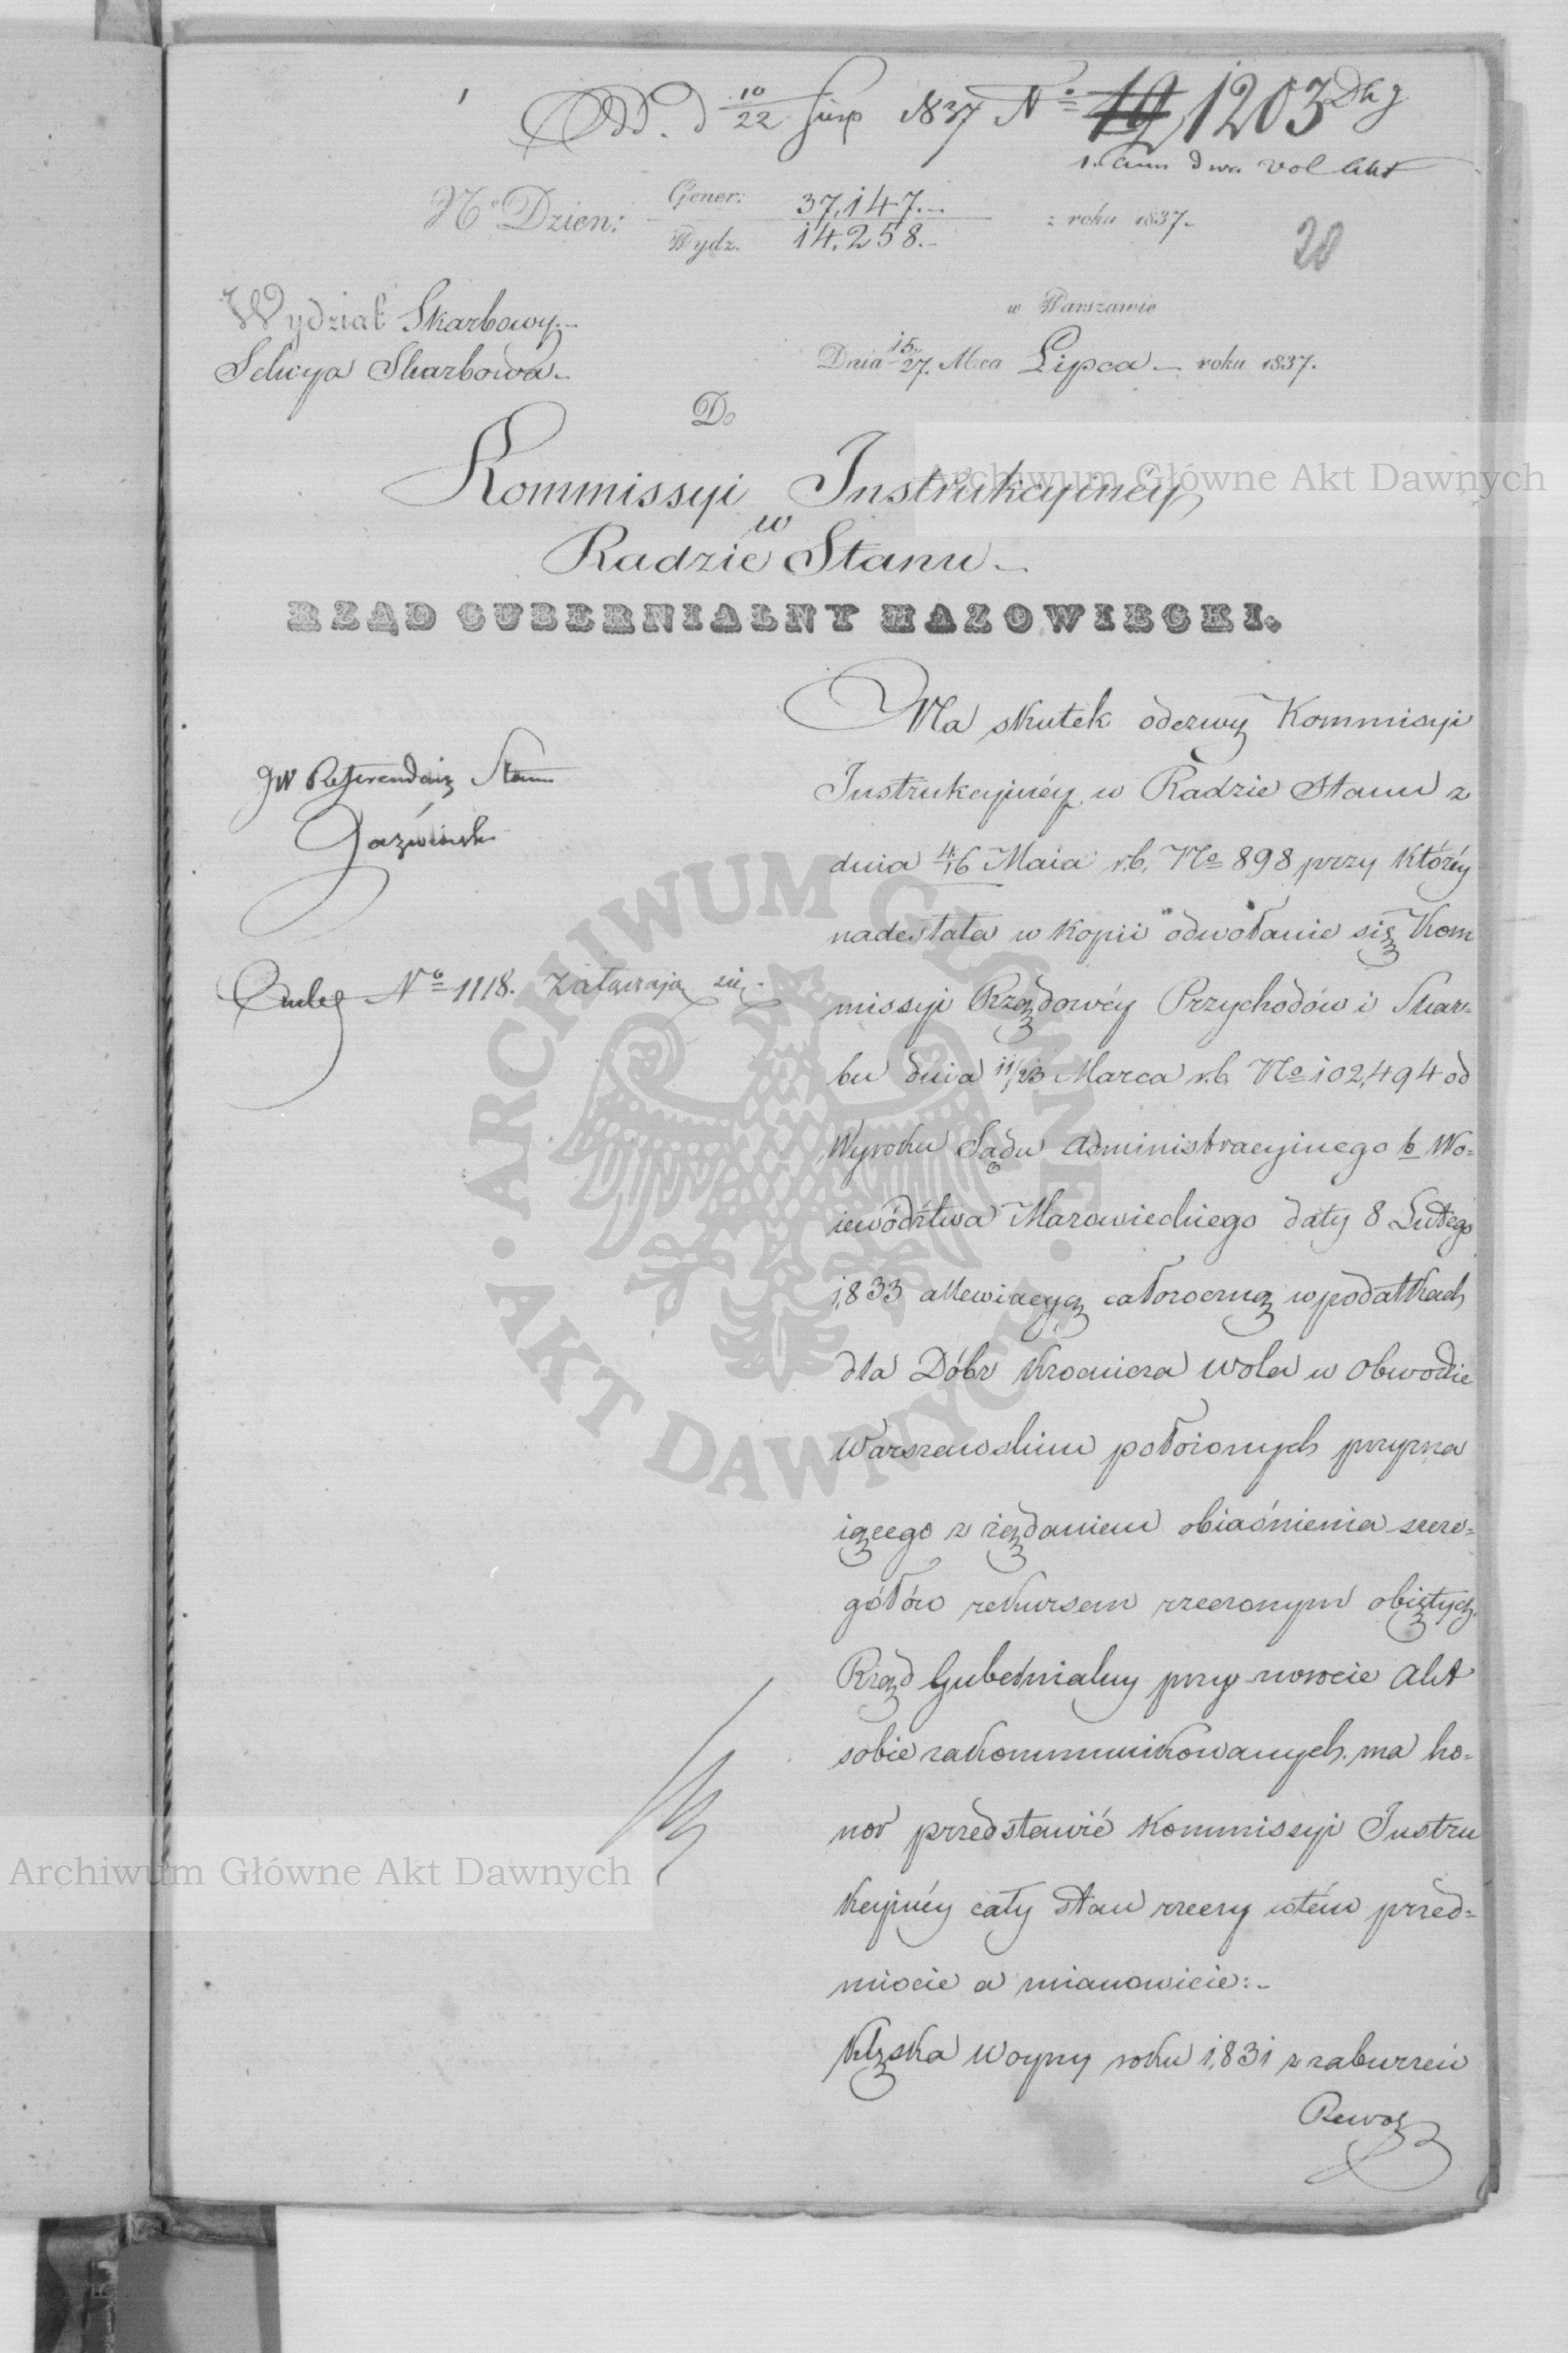 Odd. d 10/22 Sierp 1837 No 19 1203 Dkg
1. cum dwa vol Akt
No Dzien: Gener: 37,147.-
Wydz. 14,258.-
z roku 1837.-
20
Wydział Skarbowy.-
Sekcya Skarbowa.-
w Warszawie
Dnia 15/27. Mca Lipca - roku 1837.
Do
Kommissyi Instrukcyinéy
w
Radzie Stanu -
RZĄD GUBERNIALNY MAZOWIECKI.
JW Referendarz Stanu
No 1118. Załączają się.
Na skutek odezwy Kommisyi
Instrukcyinéy w Radzie Stanu z
dnia 4/16 Maia r.b. No 898 przy któréy
nadesłała w kopii odwołanie się Kom
missyi Rządowéy Przychodów i Skar=
bu dnia 11/23 Marca r.b. No 102,494 od
Wyroku Sądu Administracyinego b Wo=
iewództwa Mazowieckiego daty 8 Lutego
1,833 allewiacyą całoroczną w podatkach
dla Dóbr Krocmicza Wola w Obwodzie
Warszawskim położonych przyzna
iącego z żądaniem obiaśnienia szcze=
gółów rekursem rzeczonym obiętych.
Rząd Gubernialny przy zwrocie Akt
sobie zakommunikowanych. ma ho=
nor przedstawić Kommissyi Instru
kcyinéy cały stan rzeczy w tém przed=
miocie a mianowicie:-
Klęska Woyny roku 1,831 z zaburzeń
Rewol
Archiwum Główne Akt Dawnych
Archiwum Główne Akt Dawnych
ARCHIWUM GŁÓWNE · AKT DAWNYCH ·